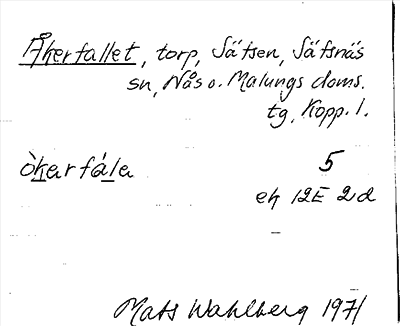 Åkerfallet, torp, Sätsen, Säfsnäs
sn, Nås o. Malungs doms.
tg, Kopp. l.
òkarfála
5
ek 12E 2d
Mats Wahlberg 1971